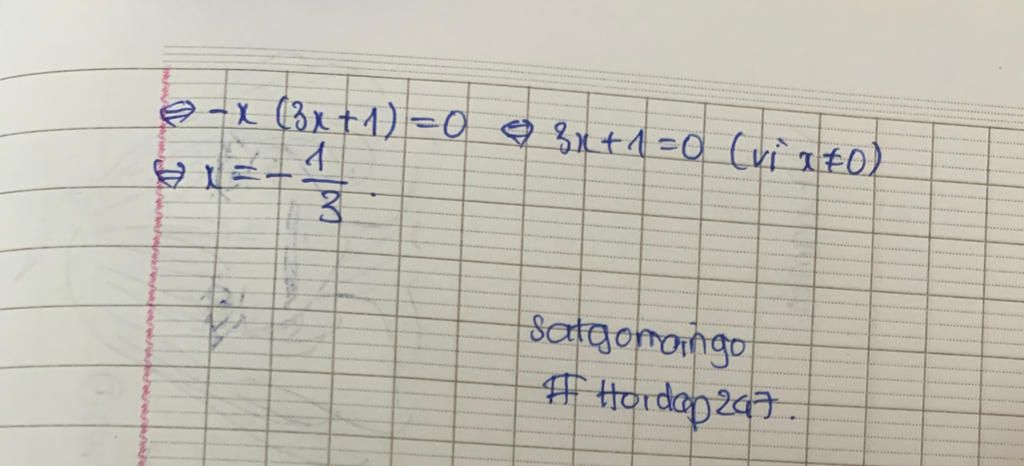 ⇔ -x (3x+1) = 0 ⇔ 3x+1 = 0 (vì x≠0)
⇔ x = -1/3.
satgomaingo
# Hoidap247.